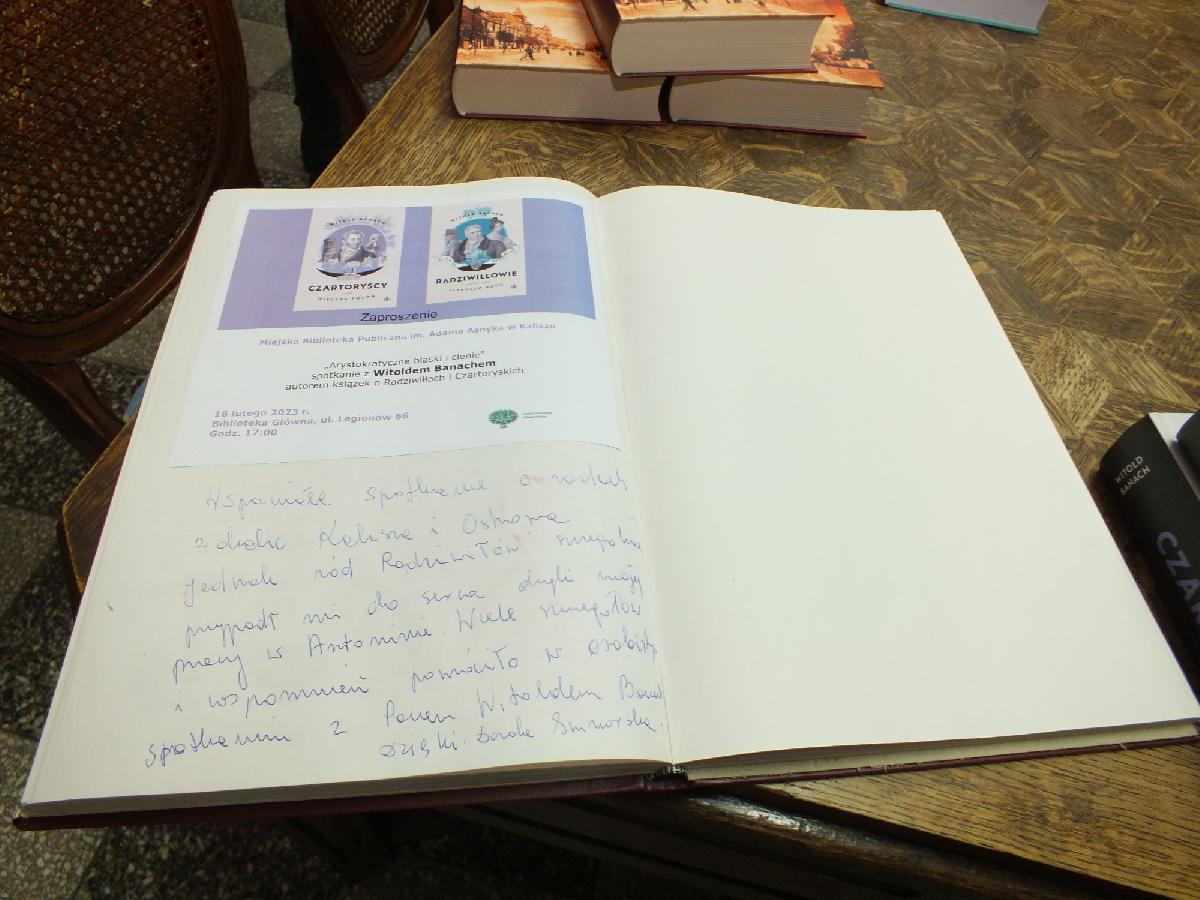 WITOLD BANACH
CZARTORYSCY
WITOLD BANACH
RADZIWIŁŁOWIE
Zaproszenie
Miejska Biblioteka Publiczna im. Adama Asnyka w Kaliszu
„Arystokratyczne blaski i cienie”
spotkanie z Witoldem Banachem
autorem książek o Radziwiłłach i Czartoryskich
16 lutego 2023 r.
Biblioteka Główna, ul. Legionów 66
Godz. 17:00
Wspaniałe spotkanie o rodach
z okolic Kalisza i Ostrowa
Jednak ród Radziwiłłów
przypadł mi do serca dzięki mojej
pracy w Antoninie. Wiele szczegółów
i wspomnień powróciło w
spotkaniu z Panem Witoldem
Dzięki.
WITOLD
BANACH